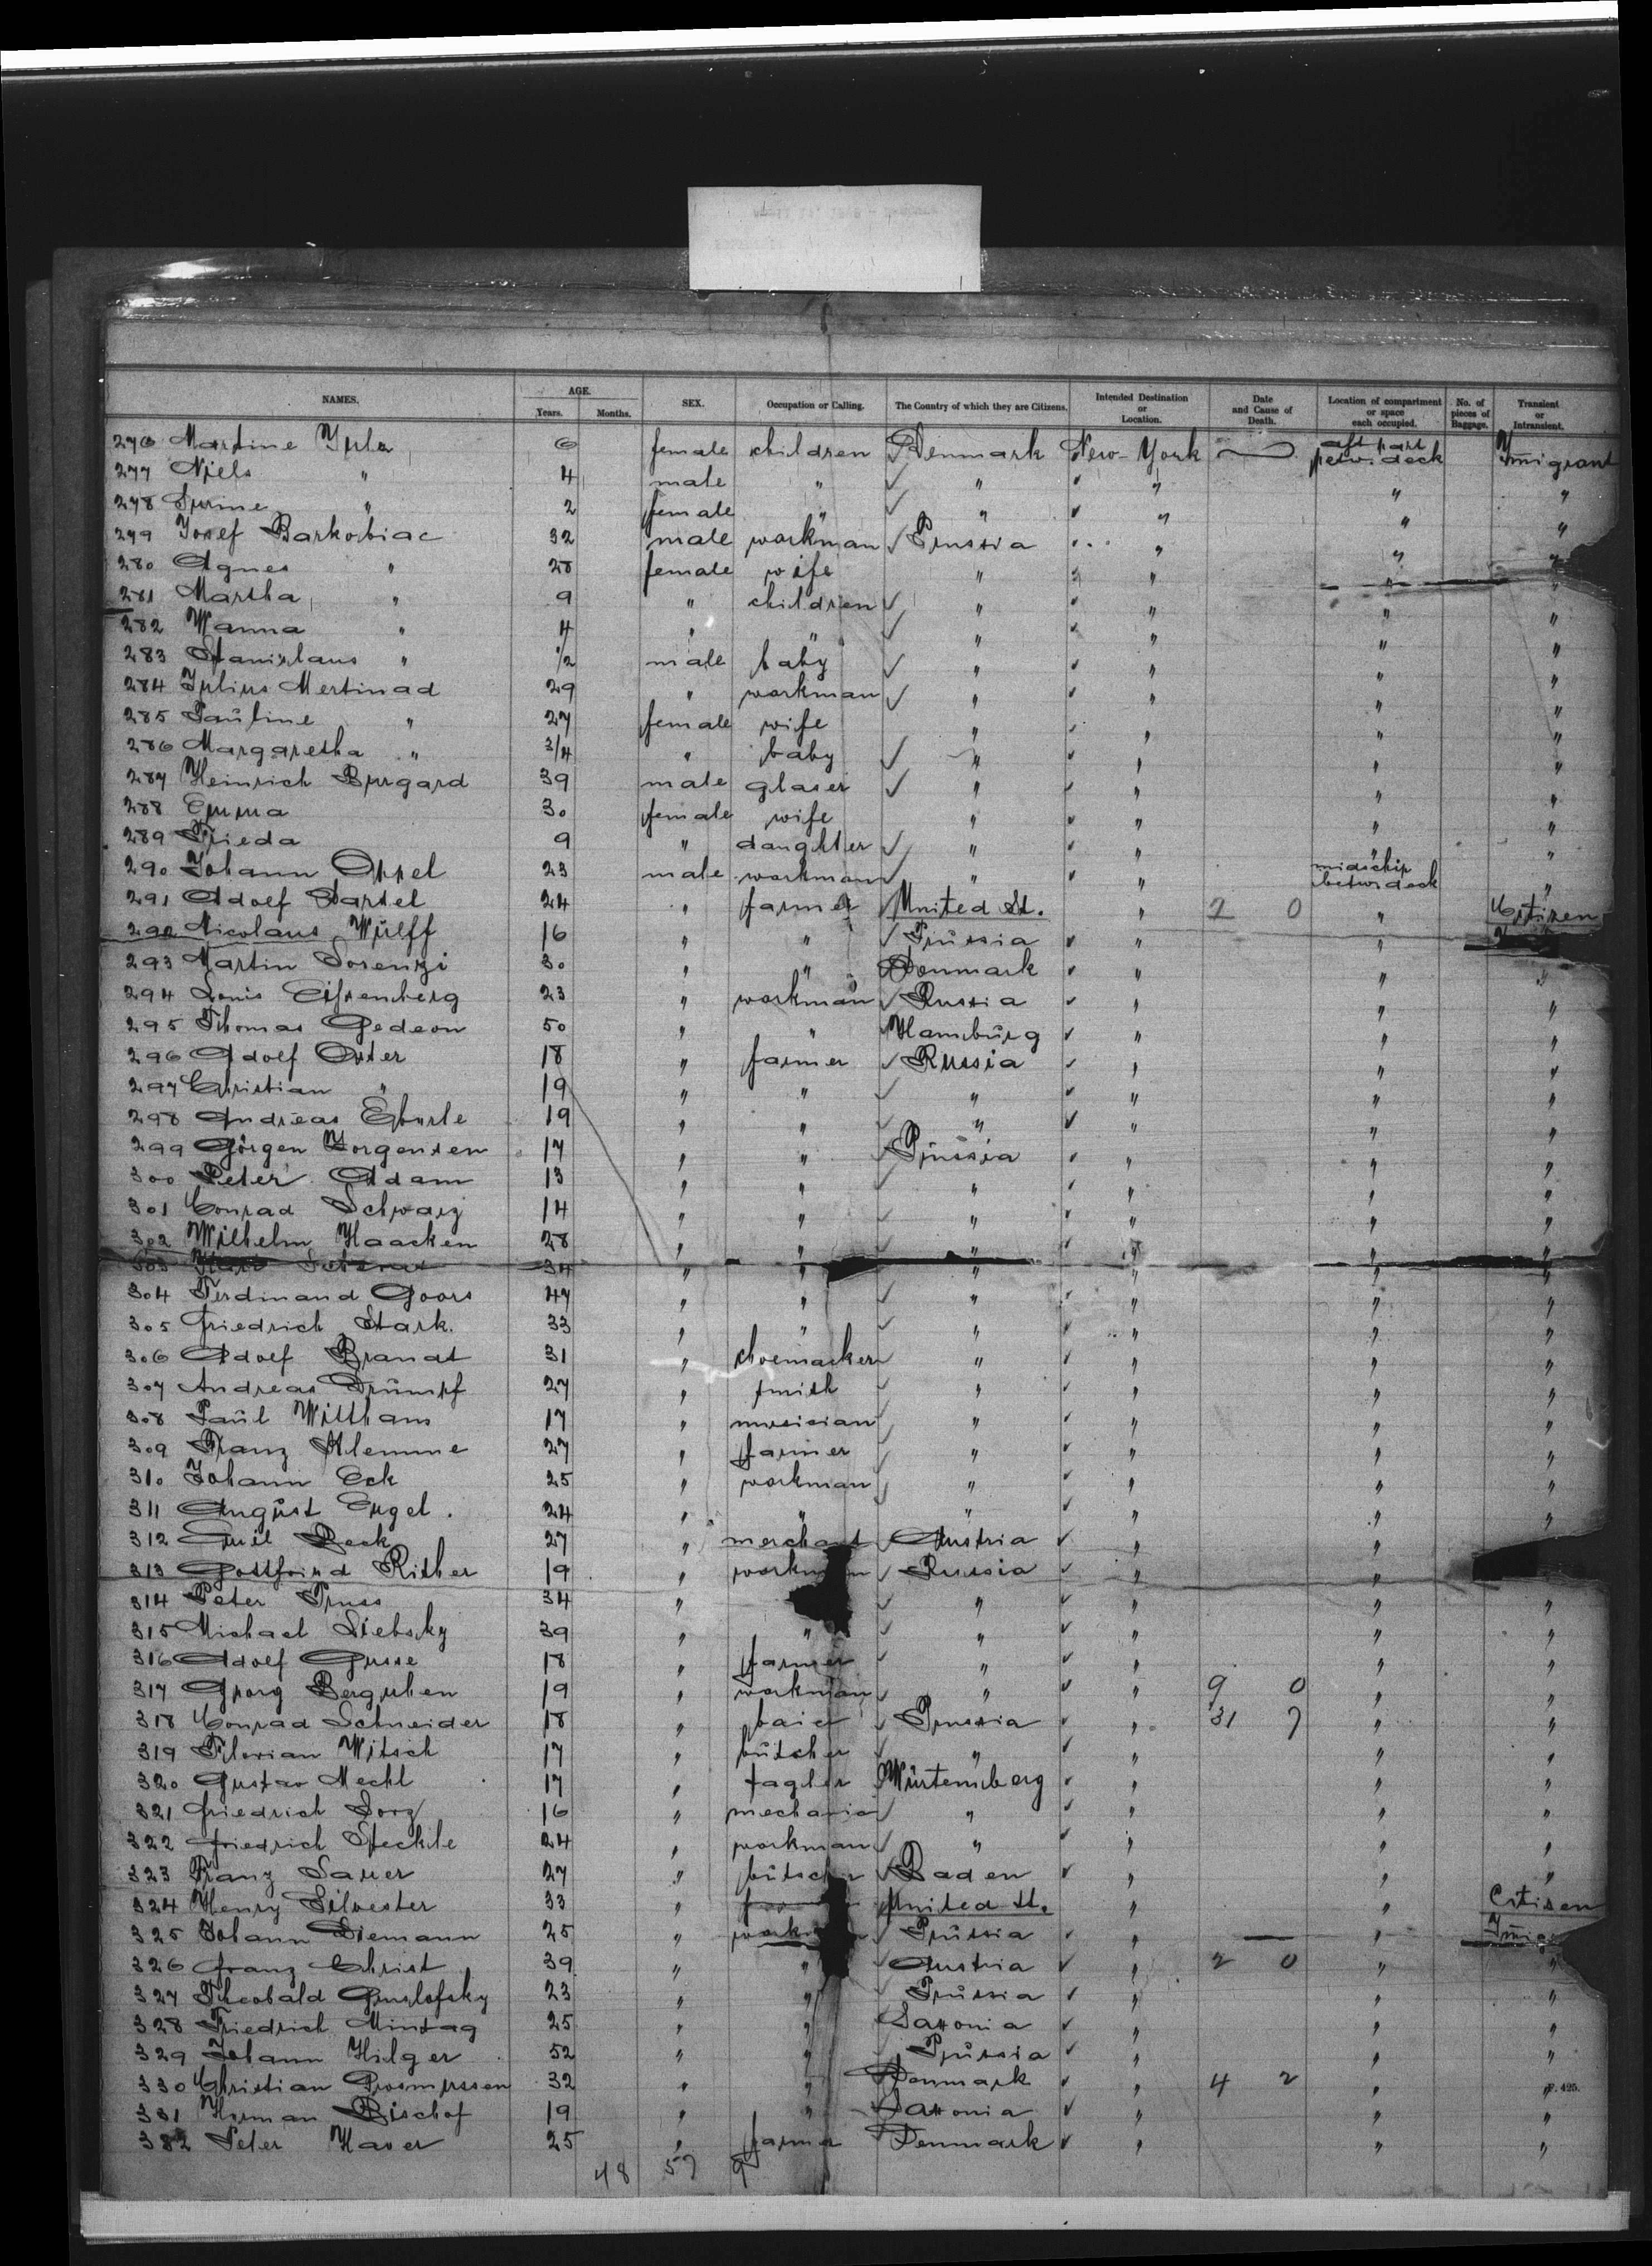 NAMES. AGE. Years. Months. SEX. Occupation or Calling. The Country of which they are Citizens. Intended Destination or Location. Date and Cause of Death. Location of compartment or space each occupied. No. of pieces of Baggage. Transient or Intransient.
276 Martine 6 female children Denmark New-York aft part betw. deck Immigrant
277 Niels " 4 male " " " " "
278 " 2 female " " " " "
279 Josef Barkobiac 32 male workman Prussia " " "
280 Agnes " 28 female wife " " " "
281 Martha " 9 " children " " " "
282 Wanna " 4 " " " " " "
283 Stanislaus " 1/2 male baby " " " "
284 Julius Mertinad 29 " workman " " " "
285 Pauline " 27 female wife " " " "
286 Margaretha " 3/4 " baby " " " "
287 Heinrich Burgard 39 male glaser " " " "
288 Emma 30 female wife " " " "
289 Frieda 9 " daughter " " " "
290 Johann Oppel 23 male workman " " midschip betw. deck "
291 Adolf Bartel 24 " farmer United St. " 2 0 " Citizen
292 Nicolaus Wülff 16 " " Prüssia " "
293 Martin Sorenzi 30 " " Denmark " " "
294 Louis Eissenberg 23 " workman Russia " " "
295 Thomas Gedeon 50 " " Hambürg " " "
296 Adolf Oster 18 " farmer Russia " " "
297 Christian " 19 " " " " " "
298 Andreas Eberle 19 " " " " " "
299 Görgen Jorgensen 17 " " Prüssia " " "
300 Peter Adam 13 " " " " " "
301 Conrad Schwarz 14 " " " " " "
302 Wilhelm Haacken 28 " " " " " "
303 34 " " " " " "
304 Ferdinand Goors 47 " " " " " "
305 Friedrich Stark. 33 " " " " " "
306 Adolf Brandt 31 " shoemacker " " " "
307 Andreas Drümpf 27 " smith " " " "
308 Paül Witthans 17 " musician " " " "
309 Franz Klemme 27 " farmer " " " "
310 Johann Eck 25 " workman " " " "
311 Augüst Engel. 24 " " " " " "
312 Emil Beck 27 " merchant Austria " "
313 Gottfried Rither 19 " workman Russia " "
314 Peter Pruss 34 " " " " "
315 Michael Siebsky 39 " " " " " "
316 Adolf Gusse 18 " farmer " " " "
317 Georg Berguhen 19 " workman " " 9 0 " "
318 Conrad Schneider 18 " Prussia " 31 7 " "
319 Florian Witsch 17 " bütcher " " " "
320 Gustav Mechl 17 " tagler Würtemberg " " "
321 Friedrich Sorg 16 " mechanic " " " "
322 Friedrich Steckle 24 " workman " " " "
323 Franz Sauer 27 " bütscher Baden " " "
324 Henry Silvester 33 " United St. " " Citizen
325 Johann Diemann 25 " workman Prüssia " " Immig
326 Franz Christ 39 " " Austria " 2 0 " "
327 Theobald Gruslofsky 23 " " Prüssia " " "
328 Friedrich Mintag 25 " " Saxonia " " "
329 Johann Hilger 52 " " Prüssia " " "
330 Christian Prosmussen 32 " " Denmark " 4 2 " " P. 425.
331 Herman Bischof 19 " " Saxonia " " "
332 Peter Haver 25 " farmer Denmark " " "
48 57 9